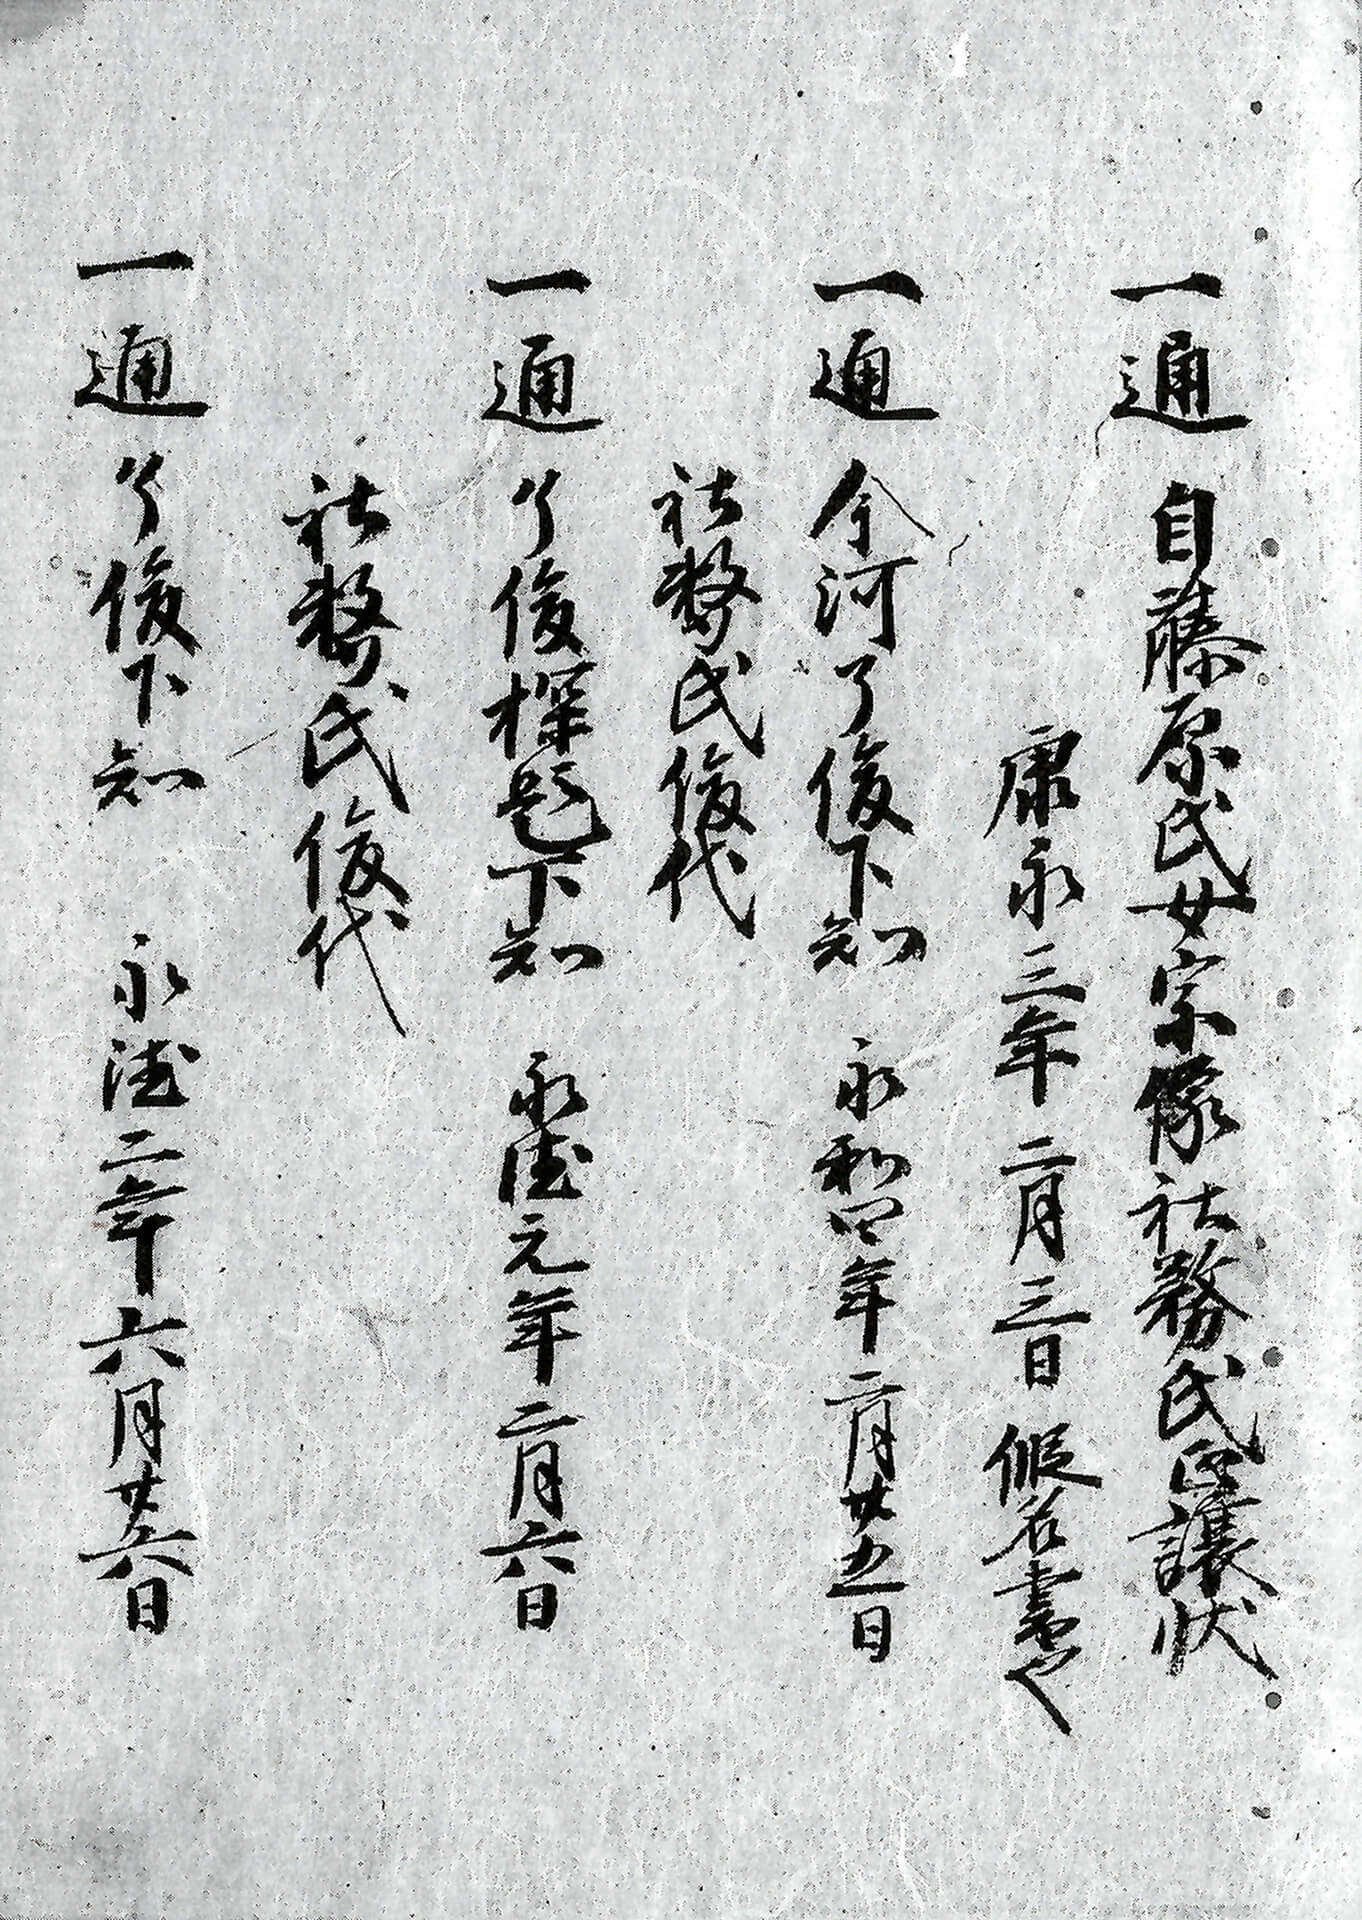 一通 自藤原氏女宗像社務氏正讓状
康永三年二月三日 假名書也
一通 今河了俊下知 永和四年二月廿五日
社務氏俊代
一通 了俊探題下知 永徳元年二月六日
社務氏俊代
一通 了俊下知 永徳二年六月廿六日